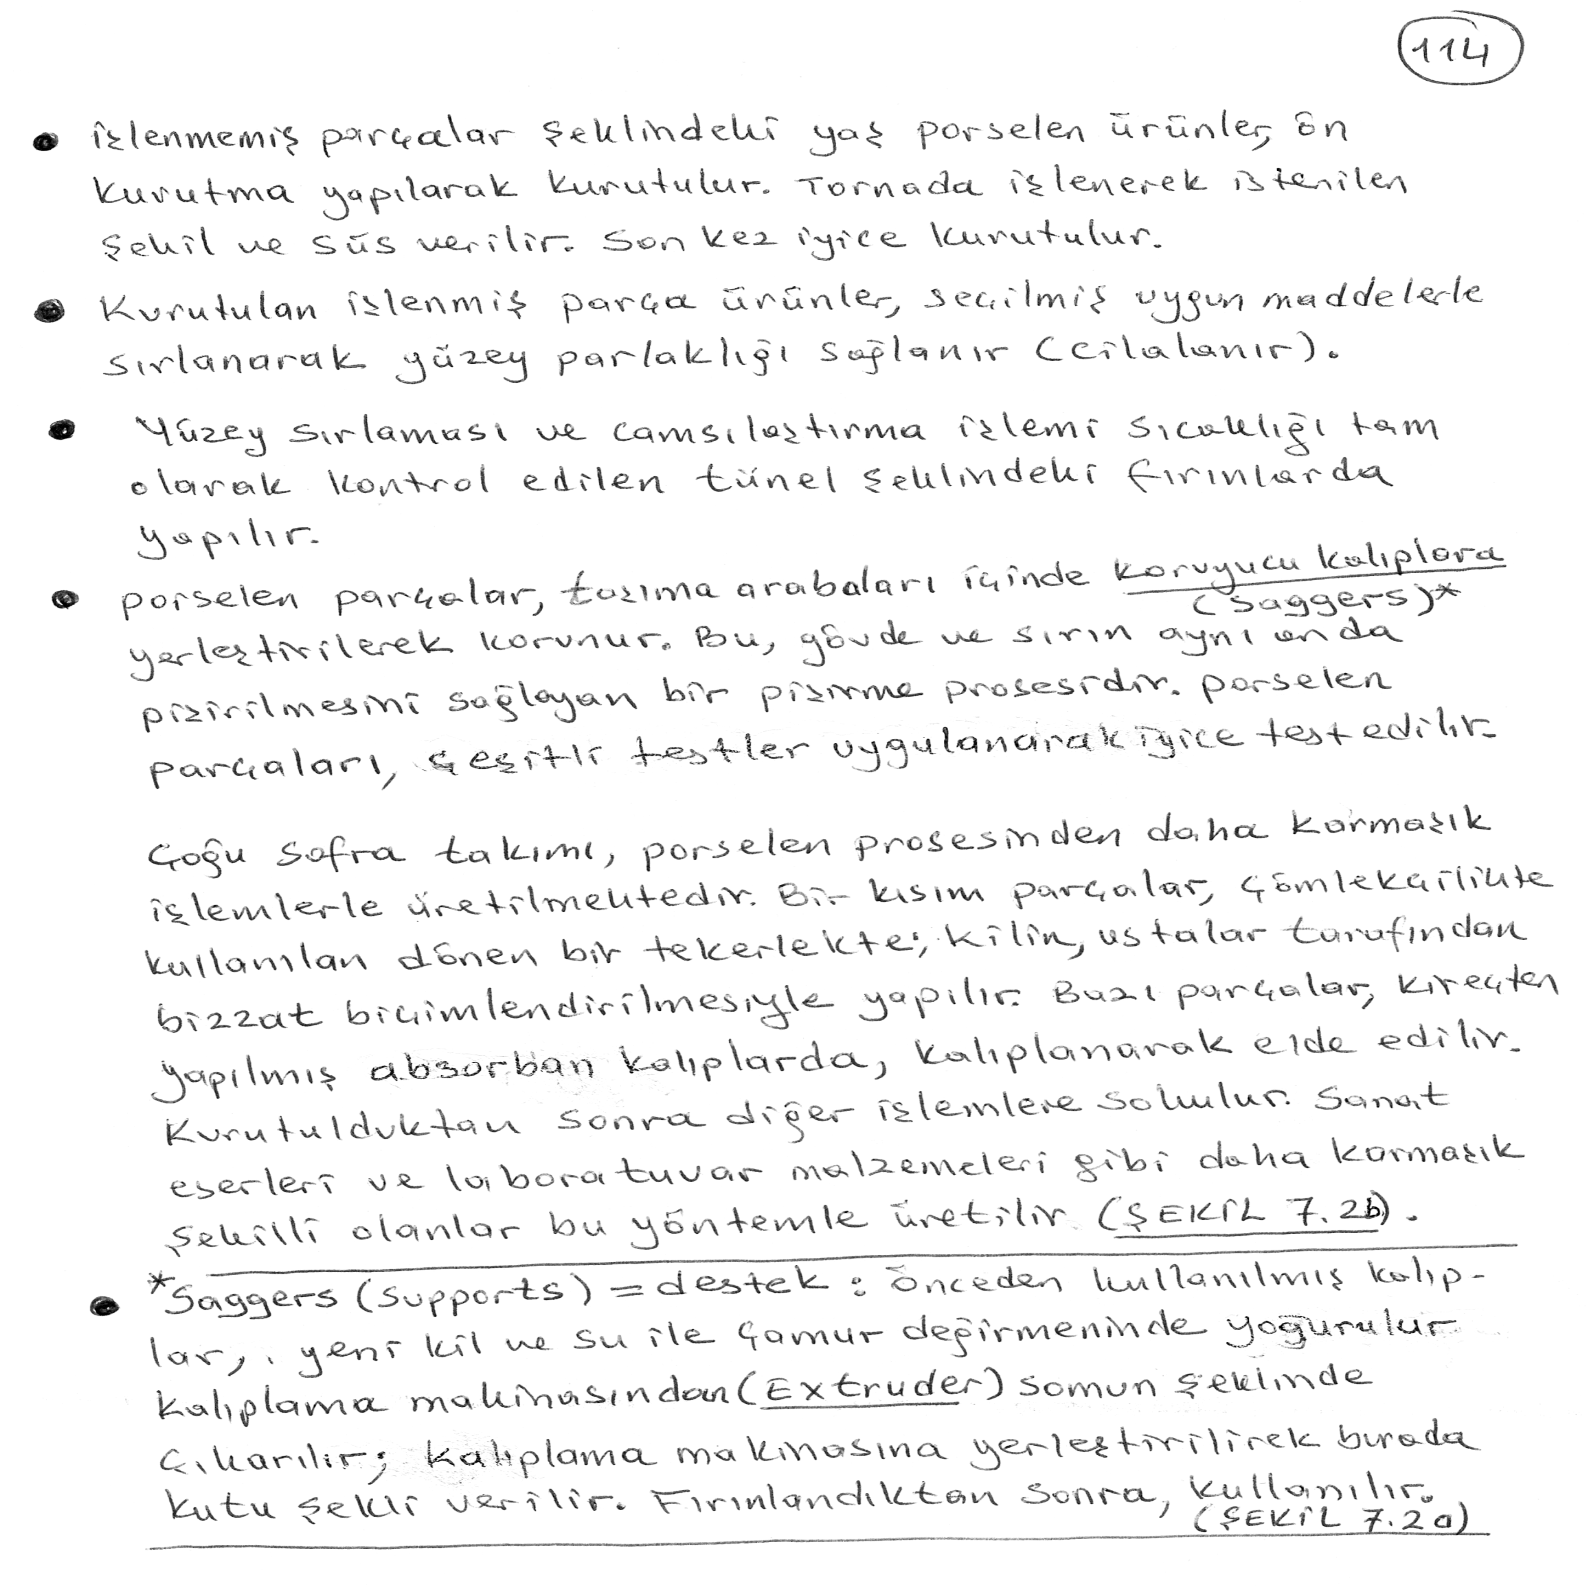 114
• İşlenmemiş parçalar şeklindeki yaş porselen ürünler, ön
kurutma yapılarak kurutulur. Tornada işlenerek istenilen
şekil ve süs verilir. Son kez iyice kurutulur.
• Kurutulan işlenmiş parça ürünler, seçilmiş uygun maddelerle
sırlanarak yüzey parlaklığı sağlanır (Cilalanır).
• Yüzey sırlaması ve camsılaştırma işlemi sıcaklığı tam
olarak kontrol edilen tünel şeklindeki fırınlarda
yapılır.
• porselen parçalar, taşıma arabaları içinde koruyucu kalıplara
(saggers)*
yerleştirilerek korunur. Bu, gövde ve sırın aynı anda
pişirilmesini sağlayan bir pişirme prosesidir. porselen
parçaları, çeşitli testler uygulanarak iyice test edilir.
Çoğu sofra takımı, porselen prosesinden daha karmaşık
işlemlerle üretilmektedir. Bir kısım parçalar, çömlekçilikte
kullanılan dönen bir tekerlekte; kilin, ustalar tarafından
bizzat biçimlendirilmesiyle yapılır. Bazı parçalar, kireçten
yapılmış absorban kalıplarda, kalıplanarak elde edilir.
Kurutulduktan sonra diğer işlemlere sokulur. Sanat
eserleri ve laboratuvar malzemeleri gibi daha karmaşık
şekilli olanlar bu yöntemle üretilir (ŞEKİL 7.2b).
• *Saggers (supports) = destek : önceden kullanılmış kalıp-
lar, yeni kil ve su ile çamur değirmeninde yoğurulur
kalıplama makinasından (Extruder) somun şeklinde
çıkarılır; kalıplama makinasına yerleştirilirek burada
kutu şekli verilir. Fırınlandıktan sonra, kullanılır.
(ŞEKİL 7.2a)